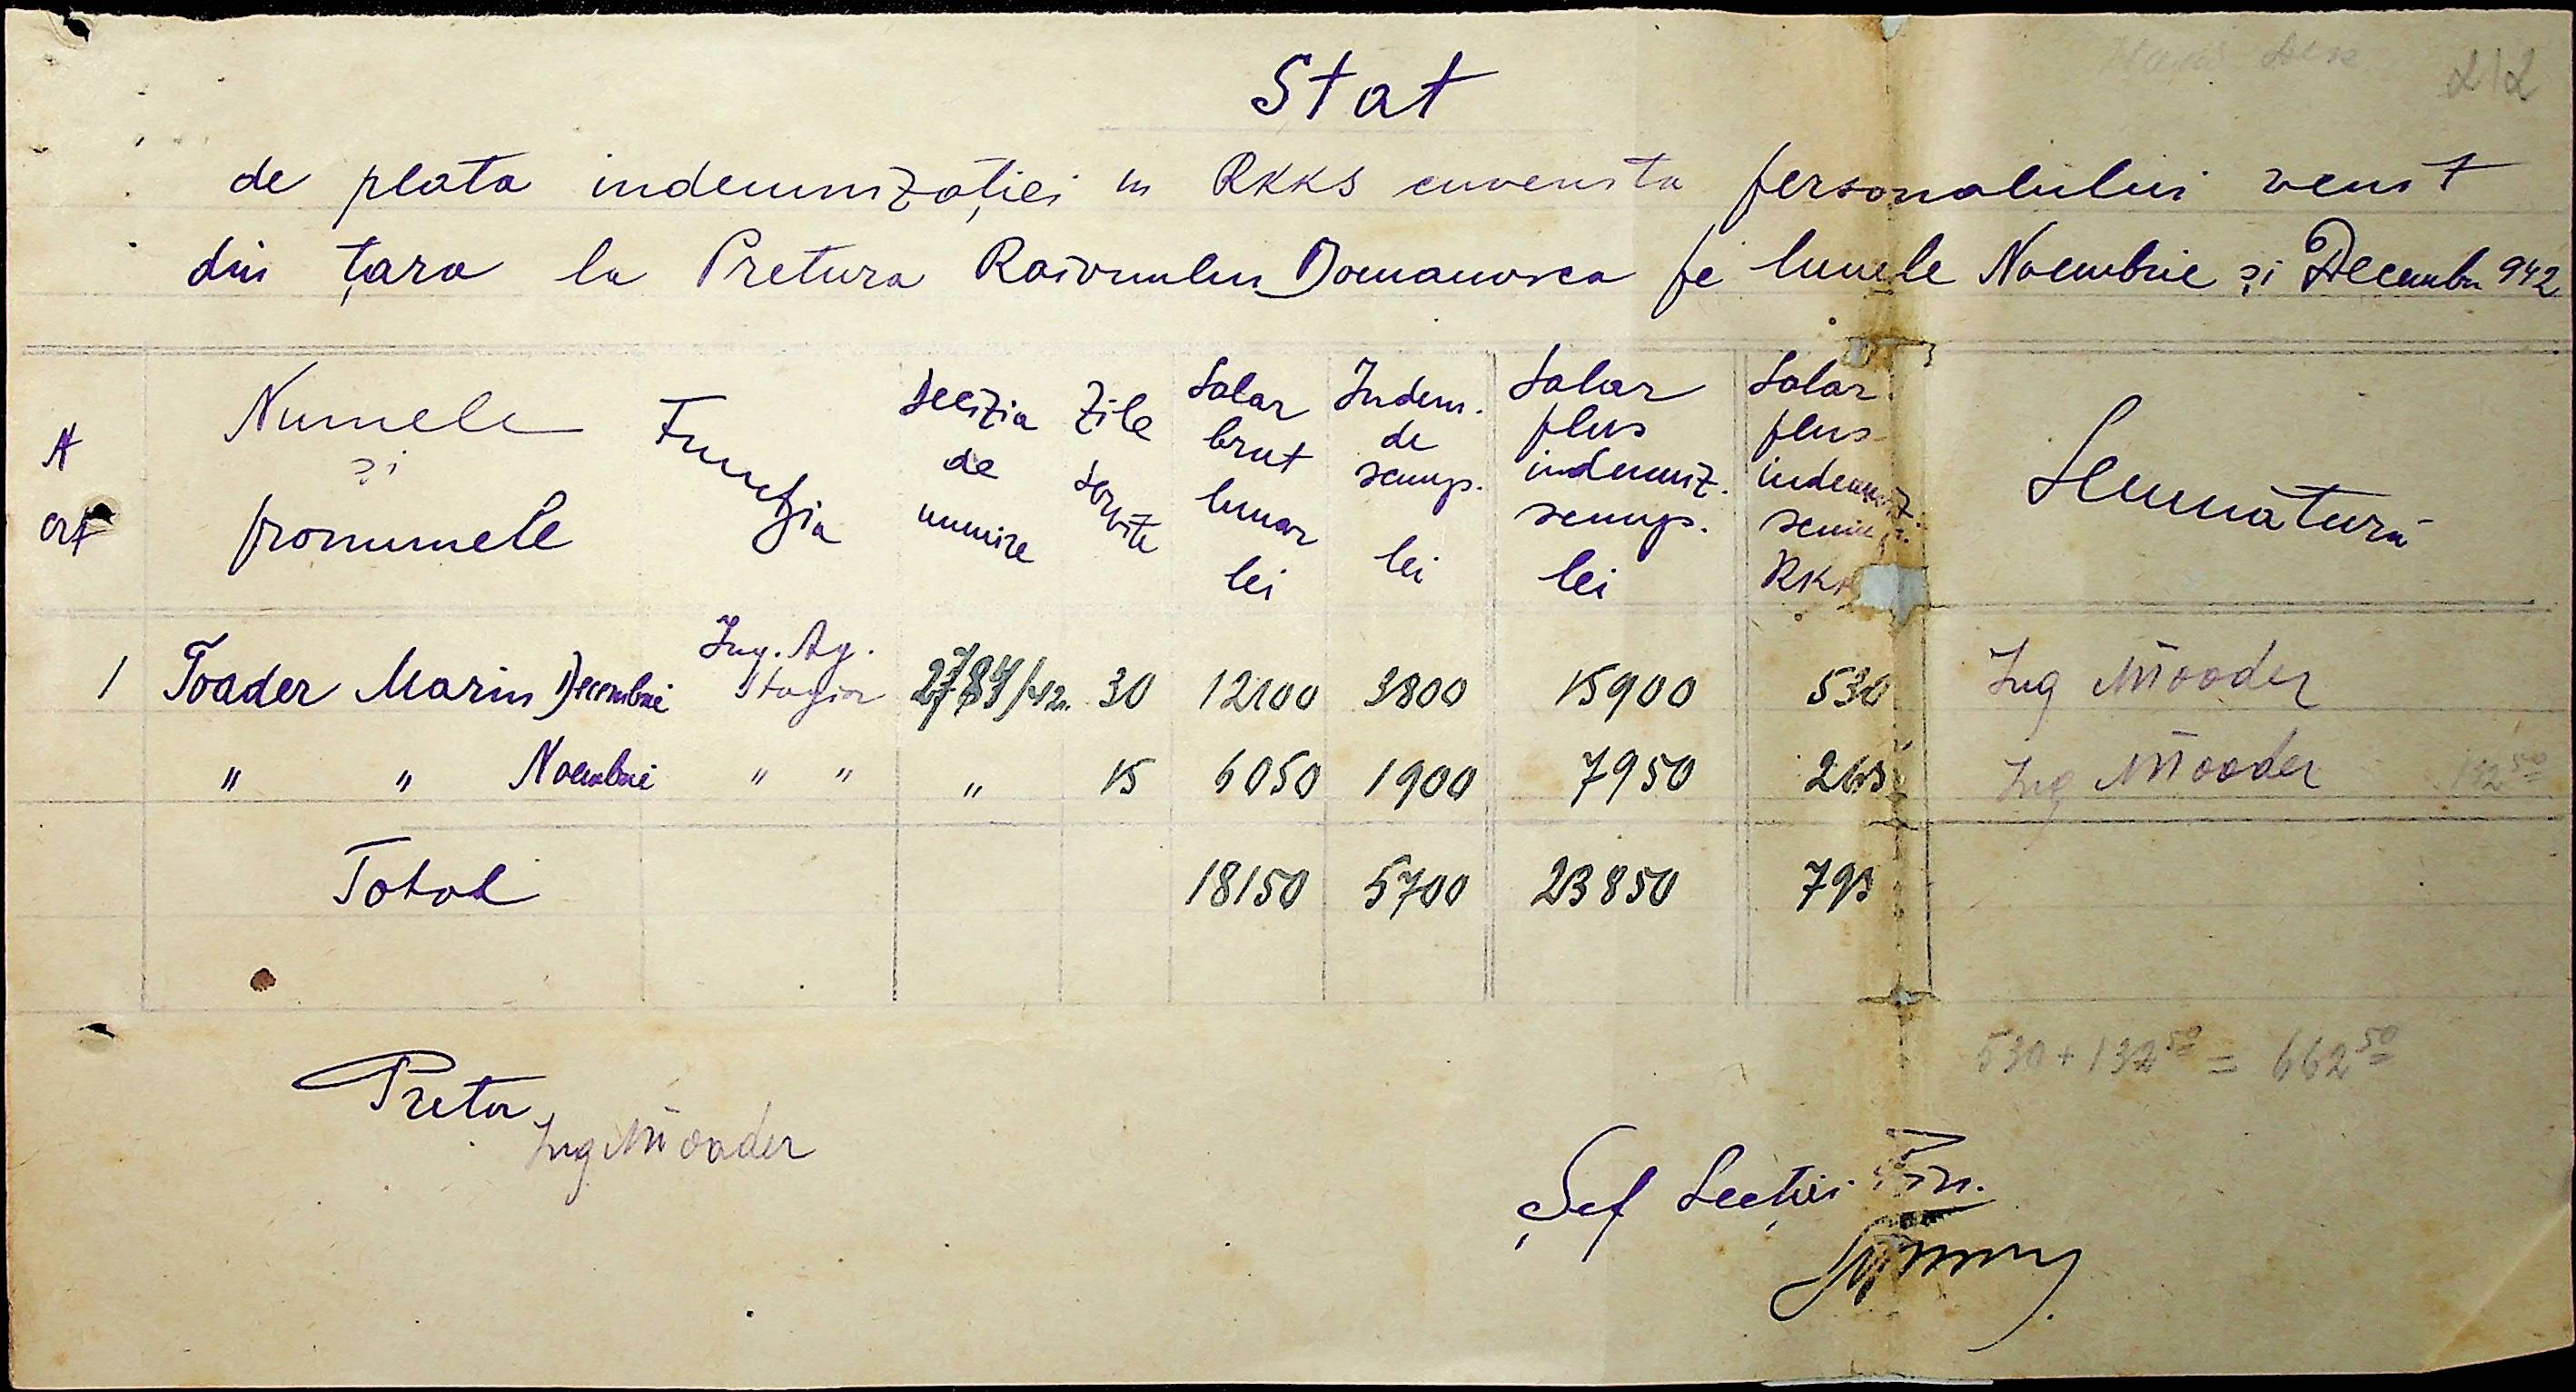 212
Stat
de plata indemnizației in RKKS cuvenita personalului venit
din țara la Pretura Raionului Domanovca pe lunele Noembrie și Decembr 942
N crt
Numele și pronumele
Funcția
Decizia de numire
Zile servite
Salar brut lunar lei
Indem. de scump. lei
Salar plus indemniz. scump. lei
Salar plus indemniz. scump. RKK
Semnătura
1 Toader Marin Decembrie Ing. Ag. Stagiar 2784/942. 30 12100 3800 15900 530 Ing MToader
" " Noembrie " " " 15 6050 1900 7950 265 Ing MToader 132 50
Total 18150 5700 23850 795
530 + 132 50 = 662 50
Pretor
Ing MToader
Șef Secției Fin.